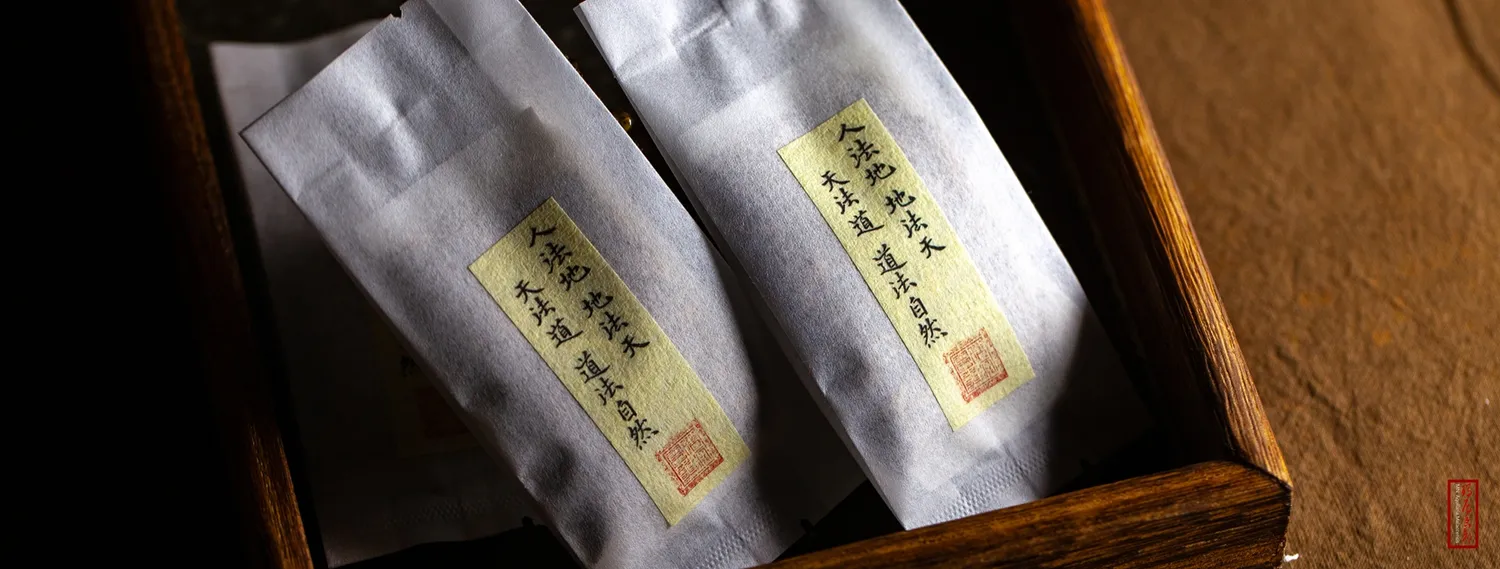 人法地 地法天
天法道 道法自然
人法地 地法天
天法道 道法自然